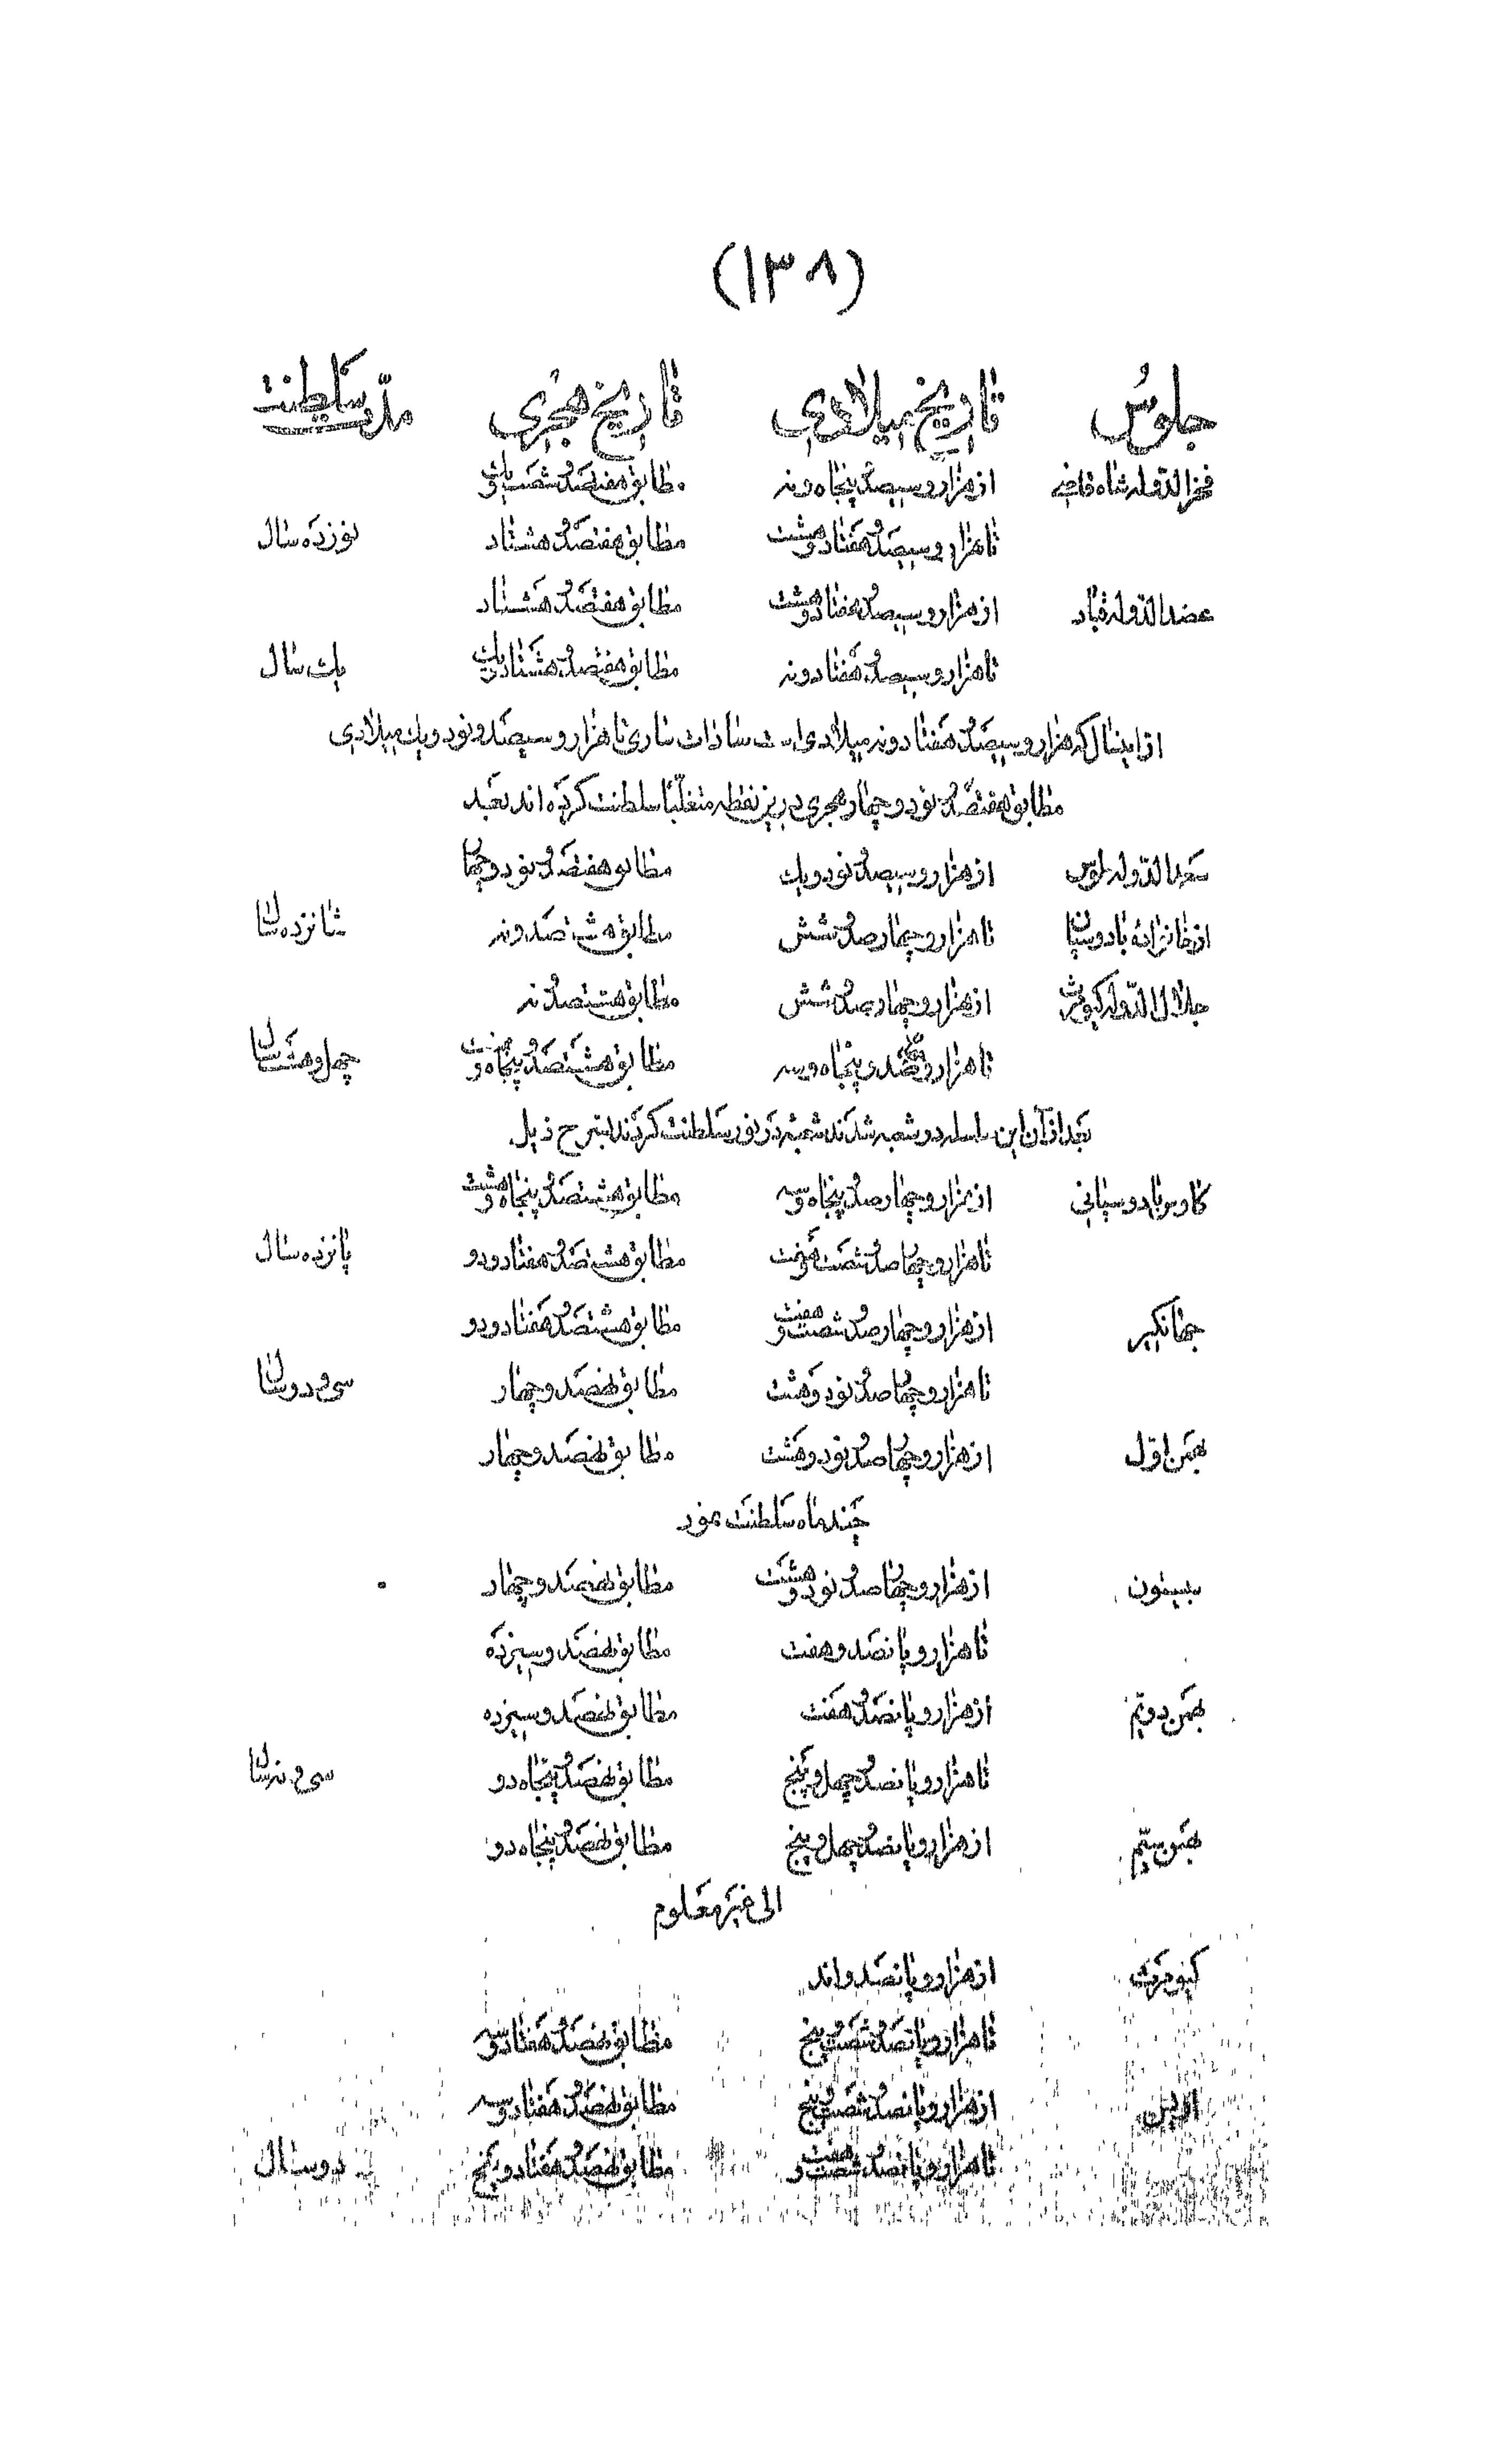 (۱۳۸)
جلوس تاریخ میلادی تاریخ هجری مدّت سلطنت
فخرالدّوله شاه غازی از هزار و سیصد و پنجاه و نه مطابق هفتصد و شصت و یک
تا هزار و سیصد و هفتاد و هشت مطابق هفتصد و هشتاد نوزده سال
عضدالدّوله قباد از هزار و سیصد و هفتاد و هشت مطابق هفتصد و هشتاد
تا هزار و سیصد و هفتاد و نه مطابق هفتصد و هشتاد و یک یک سال
از اینسال که هزار و سیصد و هفتاد و نه میلادی است سادات ساری تا هزار و سیصد و نود و یک میلادی
مطابق هفتصد و نود و چهار هجری درین نقطه متغلّبًا سلطنت کرده اند بعد
سعدالدّوله طوس از هزار و سیصد و نود و یک مطابق هفتصد و نود و چهار
از خانزادهٔ بادوسپان تا هزار و چهارصد و شش مطابق هشتصد و نه شانزده سال
جلال الدّوله کیومرث از هزار و چهارصد و شش مطابق هشتصد و نه
تا هزار و چهارصد و پنجاه و سه مطابق هشتصد و پنجاه و هشت چهل و هشت سال
بعد از آن این سلسله دو شعبه شدند شعبهٔ در نور سلطنت کردند بشرح ذیل
کاوس بادوسپانی از هزار و چهارصد و پنجاه و سه مطابق هشتصد و پنجاه و هشت
تا هزار و چهارصد و شصت و هفت مطابق هشتصد و هفتاد و دو پانزده سال
جهانگیر از هزار و چهارصد و شصت و هفت مطابق هشتصد و هفتاد و دو
تا هزار و چهارصد و نود و هشت مطابق نهصد و چهار سی و دو سال
بهمن اوّل از هزار و چهارصد و نود و هشت مطابق نهصد و چهار
چند ماه سلطنت نمود
بیستون از هزار و چهارصد و نود و هشت مطابق نهصد و چهار
تا هزار و پانصد و هفت مطابق نهصد و سیزده
بهمن دویّم از هزار و پانصد و هفت مطابق نهصد و سیزده
تا هزار و پانصد و چهل و پنج مطابق نهصد و پنجاه و دو سی و نه سال
بهمن سیّم از هزار و پانصد و چهل و پنج مطابق نهصد و پنجاه و دو
الی غیر معلوم
کیومرث از هزار و پانصد و اند
تا هزار و پانصد و شصت و پنج مطابق نهصد و هفتاد و سه
از هزار و پانصد و شصت و پنج مطابق نهصد و هفتاد و سه
تا هزار و پانصد و شصت و هفت مطابق نهصد و هفتاد و پنج دو سال